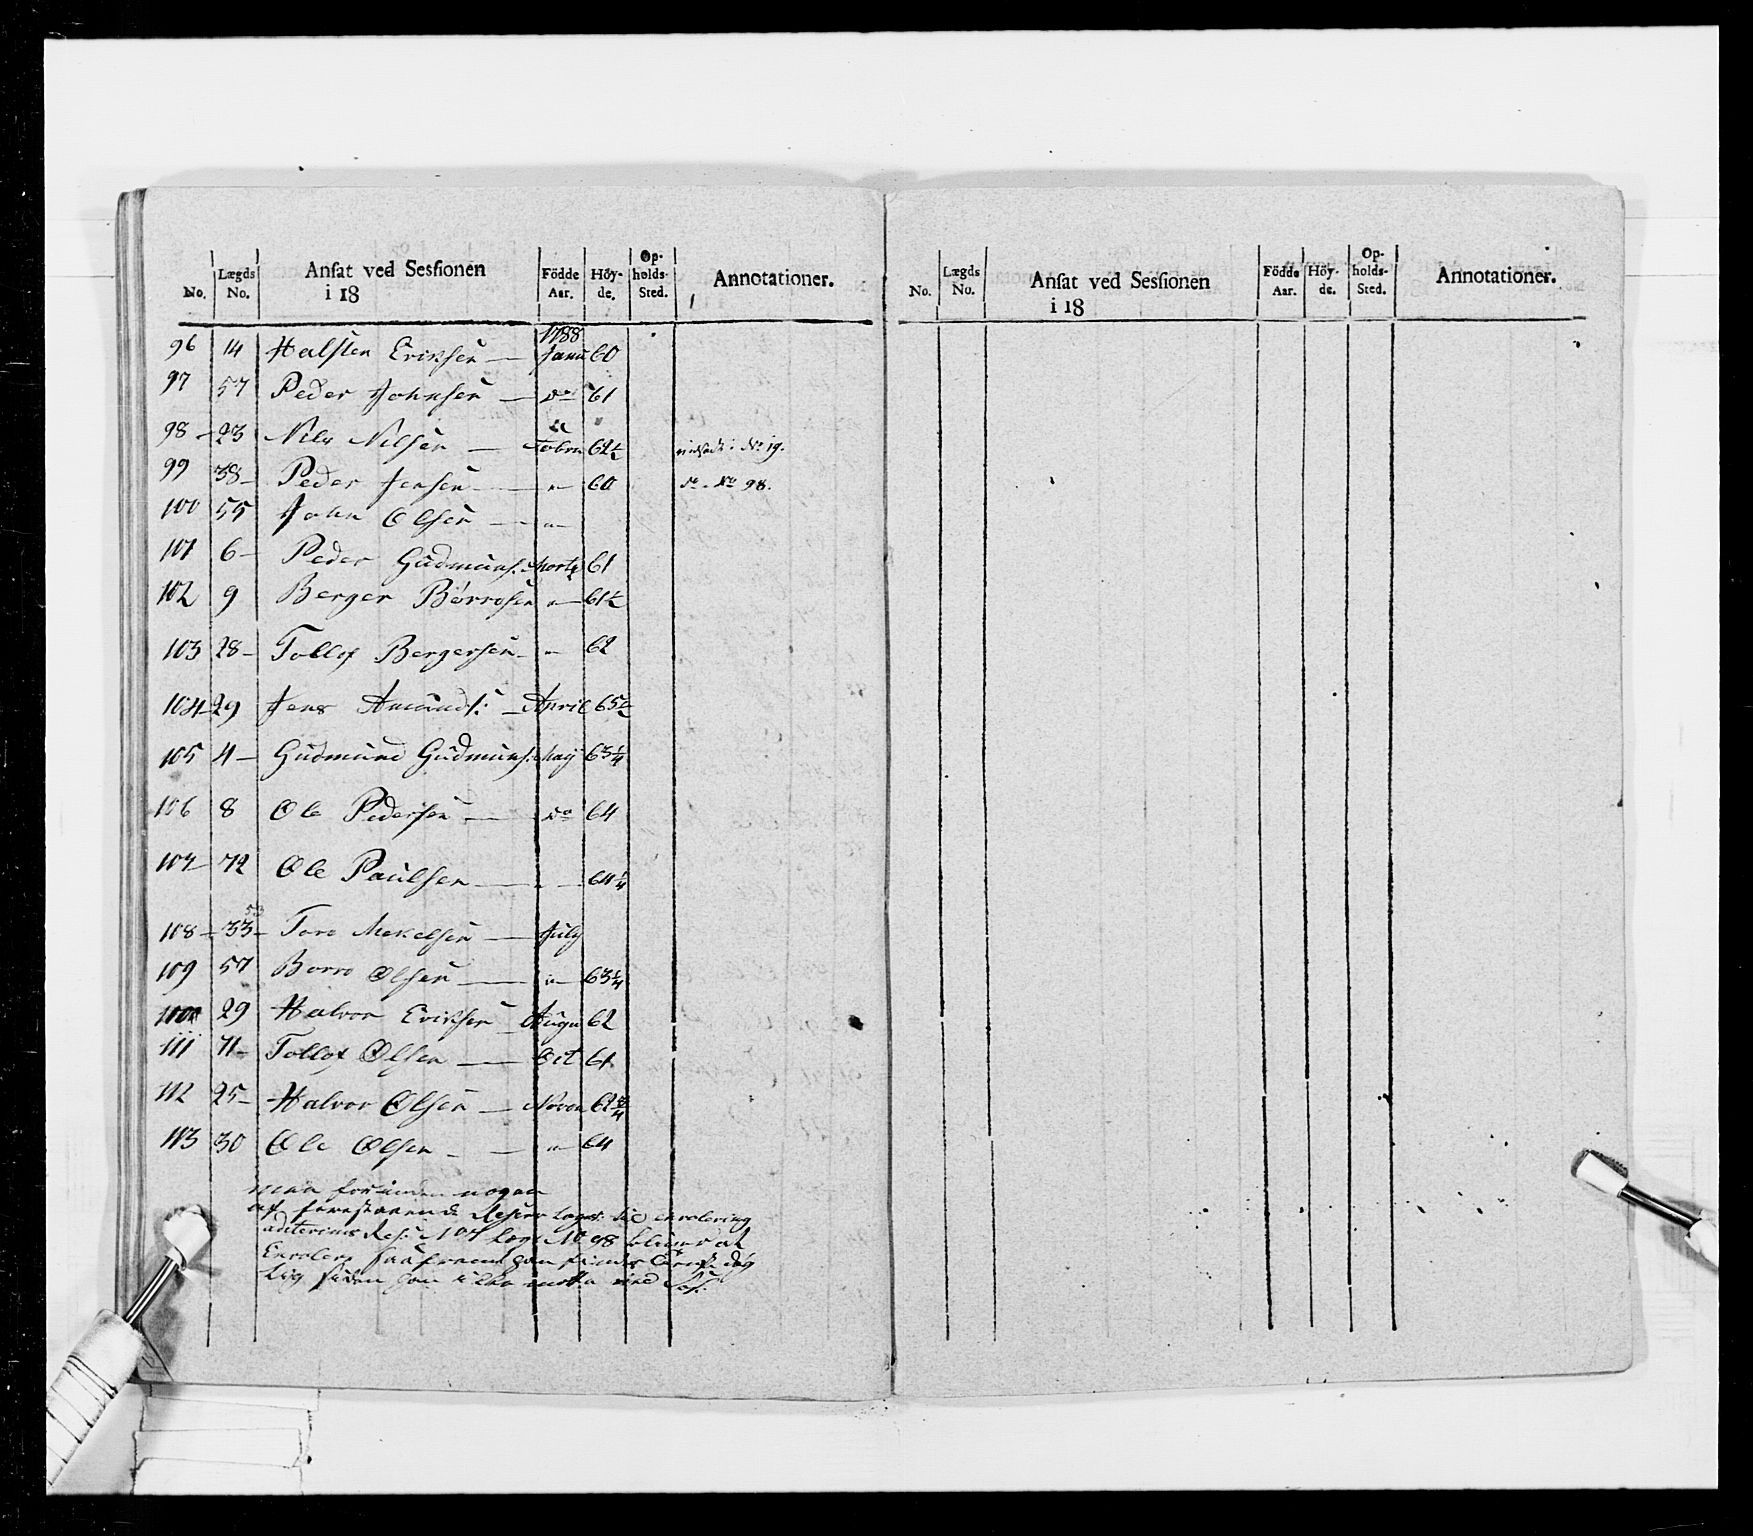 No. Lægds No. Ansat ved Sessionen i 18 Födde Aar. Höy-de. Op-holds-Sted. Annotationer.
1788
96 14 Halsten Eriksen — Janu 60
97 57 Peder Johnsen — do 61
98 - 23 Nils Nilsen — Febru 62½ No 19.
99 38 - Peder Jensen — " 60 do No 98.
100 55 John Olsen — "
101 6 - Peder Gudmuns: Marts 61
102 9 Berger Börresen " 61½
103 28 - Tollof Bergersen - " 62
104 - 29 Jens Amunds: - April 65½
105 4 - Gudmund Gudmuns: May 63¼
106 8 Ole Pedersen — do 64
107 - 72 Ole Paulsen — " 64¼
53
108 - 33 - Tore Mekelsen — July
109 57 Borre Olsen — " 63¼
110 29 Halvor Eriksen - Augu 62
111 71 - Tollof Olsen — Oct 61
112 25 - Halvor Olsen — Novem 62¾
113 30 Ole Olsen - — " 64
nogen
af forestaaende til enrolering
No 98 at
siden
No. Lægds No. Ansat ved Sessionen i 18 Födde Aar. Höy-de. Op-holds-Sted. Annotationer.